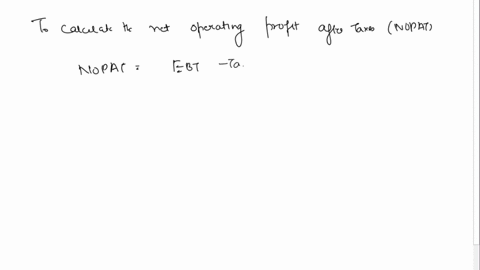 To calculate the net operating profit after Taxes (NOPAT)
NOPAT = EBT - Ta